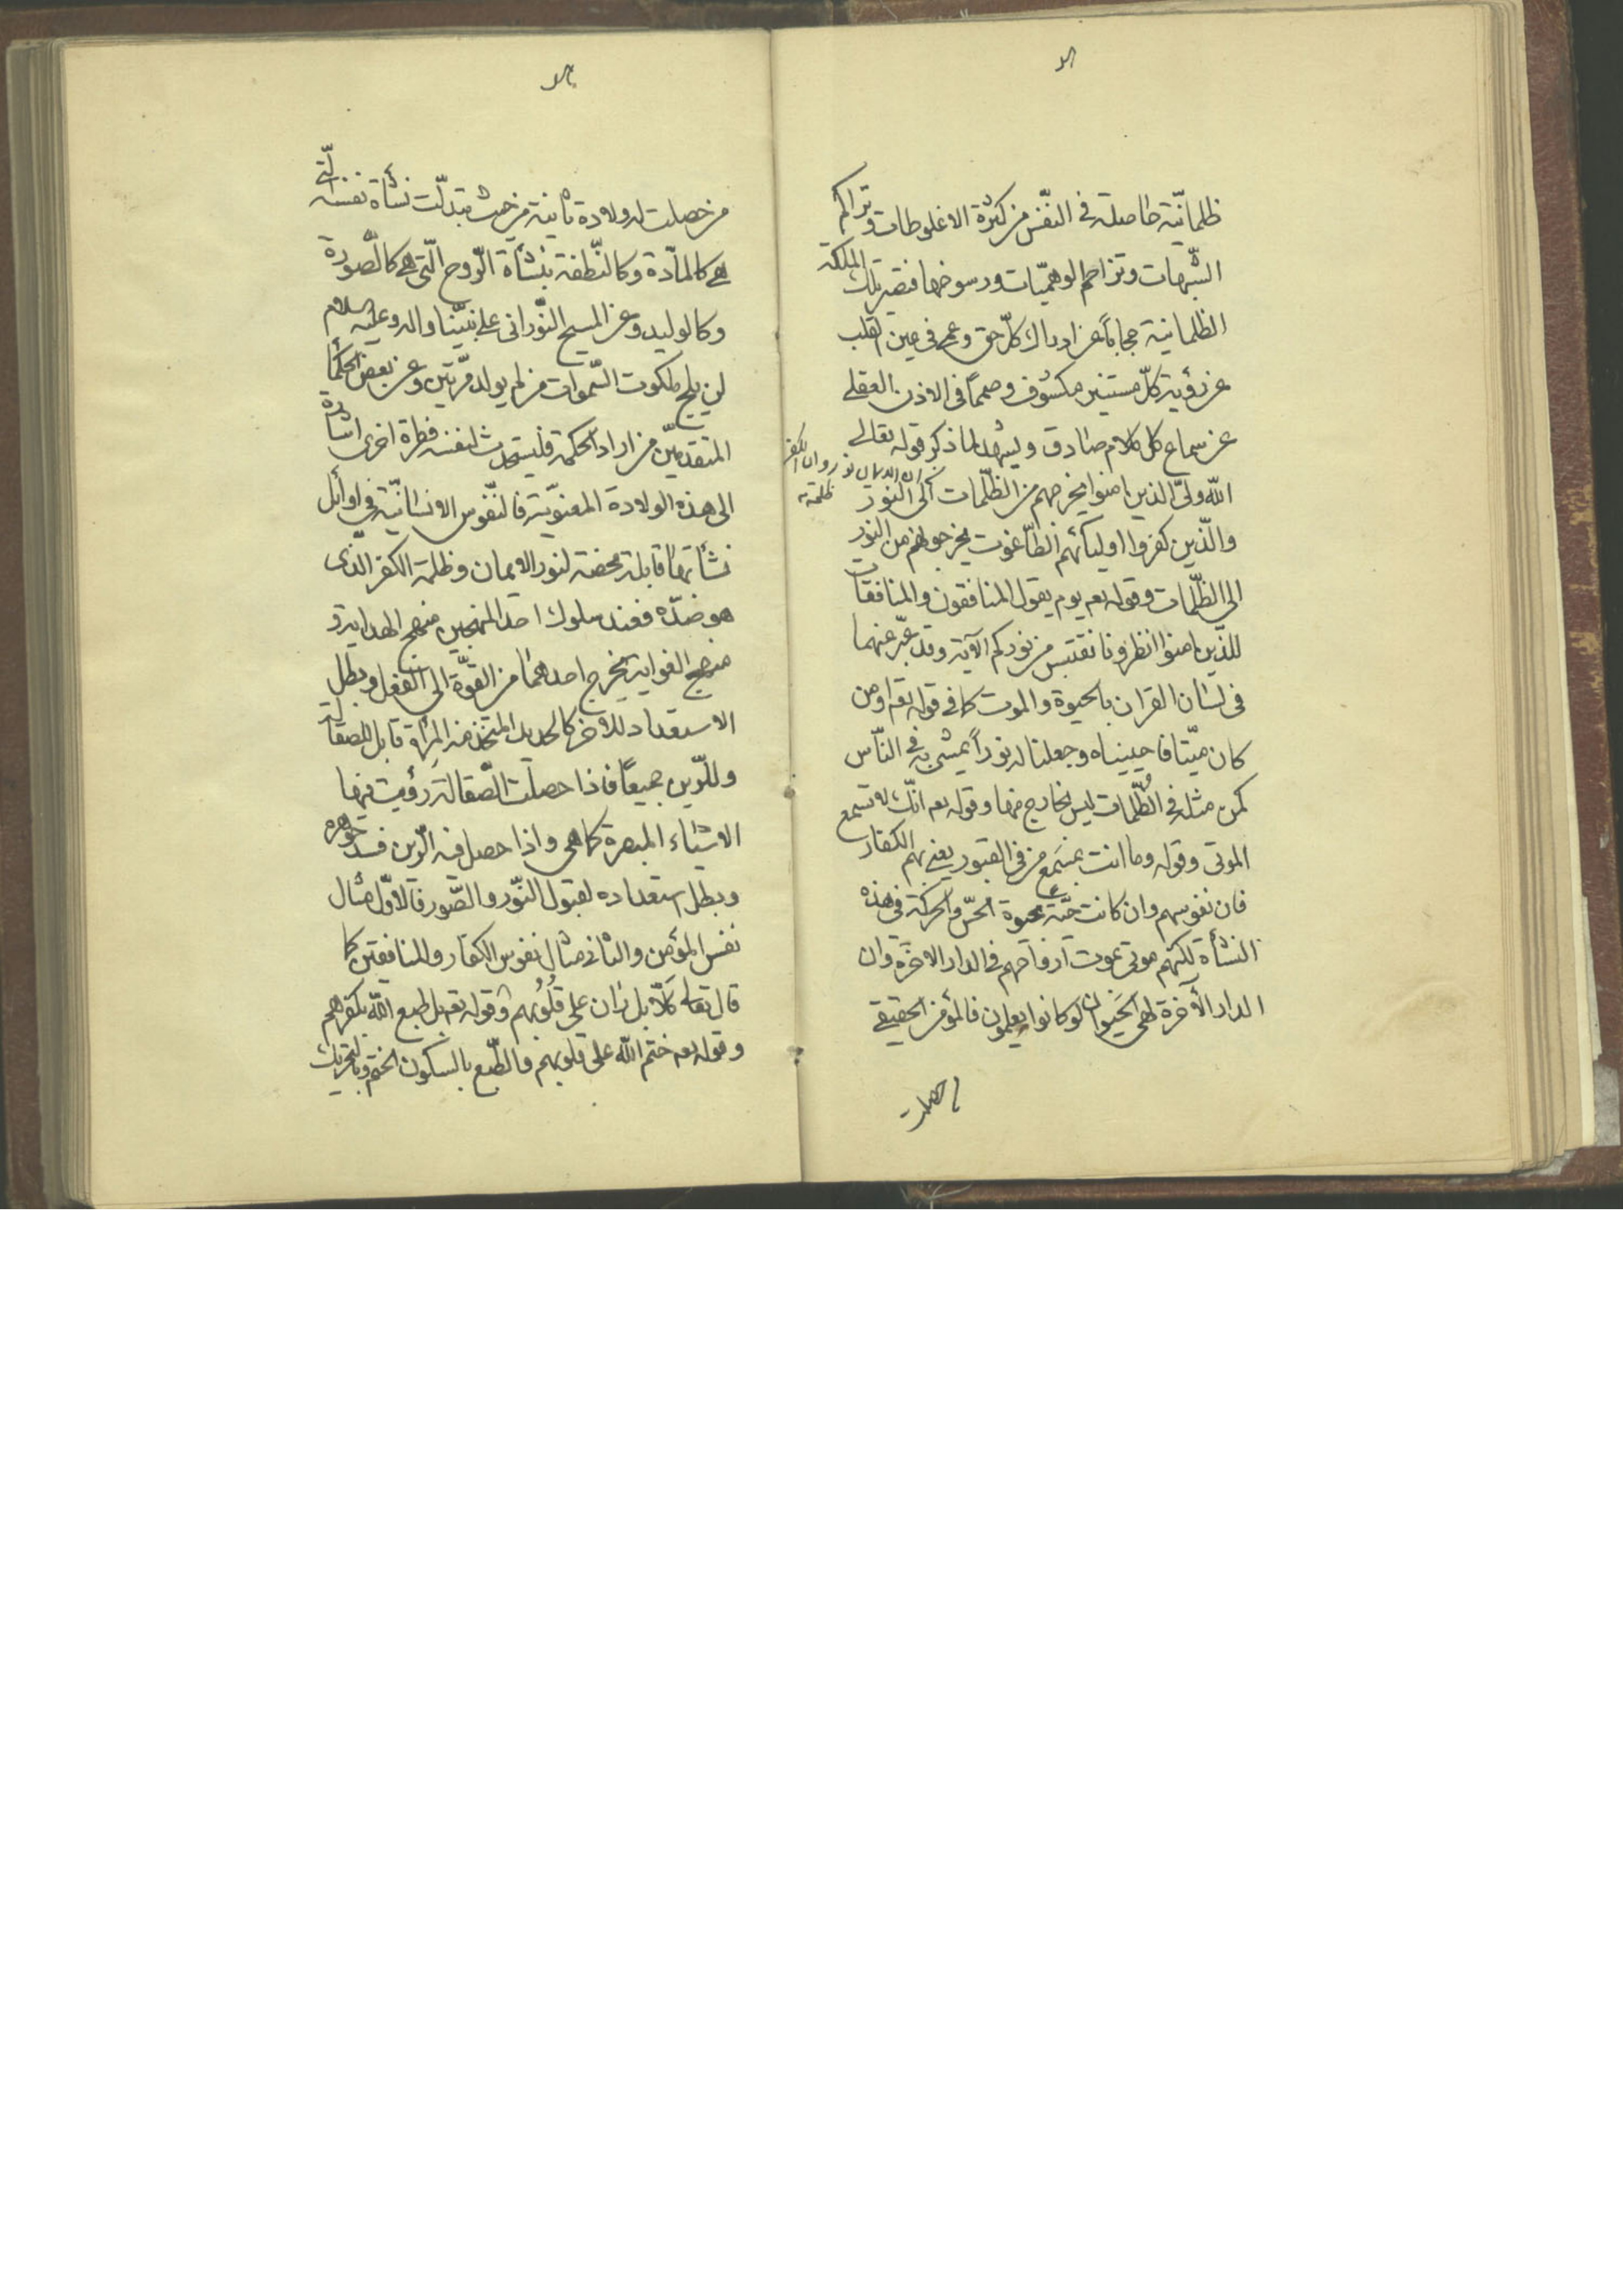 ظلمانيّة حاصلة فی النفس من كثرة الاغلوطات وتراكم
الشّبهات وتزاحم الوهميّات ورسوخها فتصير تلك الملكة
الظلمانية حجاباً عن ادراك كلّ حق وعمی فی عين القلب
عن رؤية كلّ مستنير مكشوف وصمماً فی الاذن العقلی
عن سماع كل كلام صادق ويشهد لما ذكر قوله تعالی
ان الايمان نور وان الكفر
ظلمة
الله ولیّ الذين امنوا يخرجهم من الظّلمات الی النّور
والّذين كفروا اوليائهم الطّاغوت يخرجونهم من النور
الی الظّلمات وقوله تعم يوم يقول المنافقون والمنافقات
للذّين امنوا انظرونا نقتبس من نوركم الآية وقد عبّر عنهما
فی لسان القران بالحيوة والموت كما فی قوله تعم اومن
كان ميّتا فاحييناه وجعلنا له نوراً يمشی به فی النّاس
كمن مثله فی الظّلمات ليس بخارج منها وقوله تعم انّك لا تسمع
الموتی وقوله وما انت بمسمع من فی القبور يعنی بهم الكفار
فان نفوسهم وان كانت حيّة بحيوة الحسّ والحركة فی هذه
النشأة لكنّهم موتی بموت ارواحهم فی الدار الاخرة وان
الدار الآخرة لهی الحيوان لو كانوا يعلمون فالمؤمن الحقيقی
من حصلت
من حصلت له ولادة ثانية من حيث تبدّلت نشأة نفسه الّتی
هی كالمادّة وكالنّطفة بنشأة الرّوح الّتی هی كالصّورة
وكالوليد وعن المسيح النّورانی علی نبيّنا واله وعليه السلام
لن يلج ملكوت السّموات من لم يولد مرّتين وعن بعض الحكما
المتقدمين من اراد الحكمة فليستحدث لنفسه فطرة اخری اشارة
الی هذه الولادة المعنويّة فالنّفوس الانسانيّة فی اوائل
نشأتها قابلة محضة لنور الايمان وظلمة الكفر الذی
هو ضدّه فعند سلوك احد المنهجين منهج الهداية و
منهج الغواية يخرج احدهما من القوّة الی الفعل وبطل
الاستعداد للاخر كالحديد المتخذ منه المرأة قابل للصقالة
وللرّين جميعاً فاذا حصلت الصّقالة رؤيت فيها
الاشياء المبصرة كما هی واذا حصل فيه الرّين فسد جوهره
وبطل استعداده لقبول النّور والصّور فالاوّل مثال
نفس المؤمن والثانی مثال نفوس الكفار والمنافقين كما
قال تعالی كلّا بل ران علی قلوبهم وقوله تعم بل طبع الله بكفرهم
وقوله تعم ختم الله علی قلوبهم والطّبع بالسكون الختم وبالتحريك